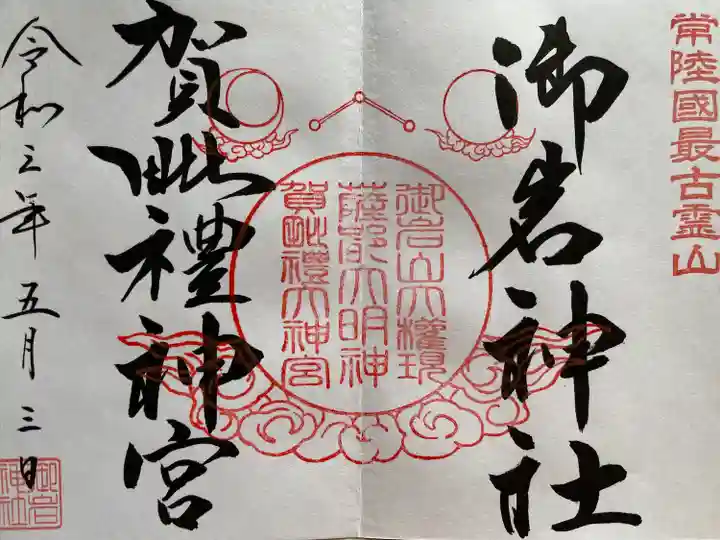 常陸國最古霊山
御岩神社
御岩山大權現
薩都大明神
賀毗禮大神宮
賀毗禮神宮
令和三年五月三日
御岩神社